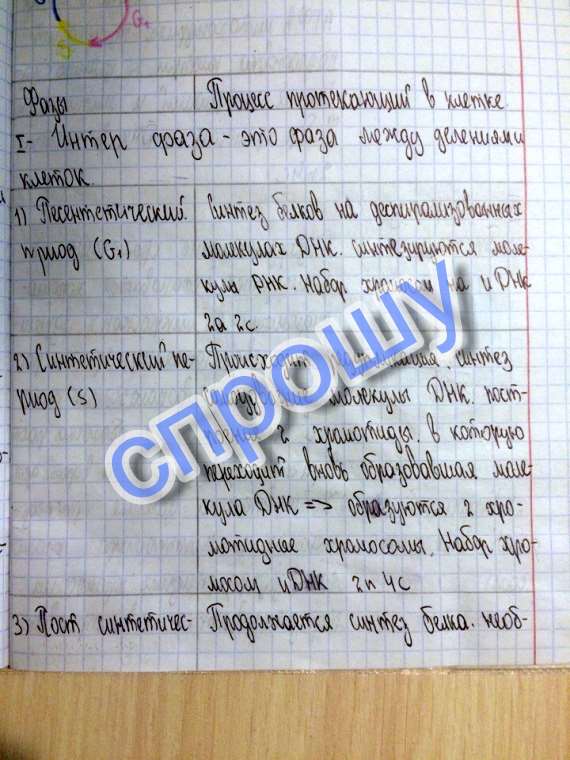 S G₁
Фазы Процесс протекающий в клетке
I- Интер фаза - это фаза между делениями
клеток.
1) Песентетический Синтез белков на деспирализованных
период (G₁) молекулах ДНК. синтезируются моле-
кулы РНК. Набор и ДНК
2с
2) Синтетический пе- Происходит синтез
риод (S) молекулы ДНК. пост-
2 хромотиды, в которую
переходит вновь образовавшая моле-
кула ДНК => образуются 2 хро-
матидные хромосомы. Набор хро-
мосом и ДНК 2n 4c
3) Пост синтетичес- Продолжается синтез белка. необ-
спрошу